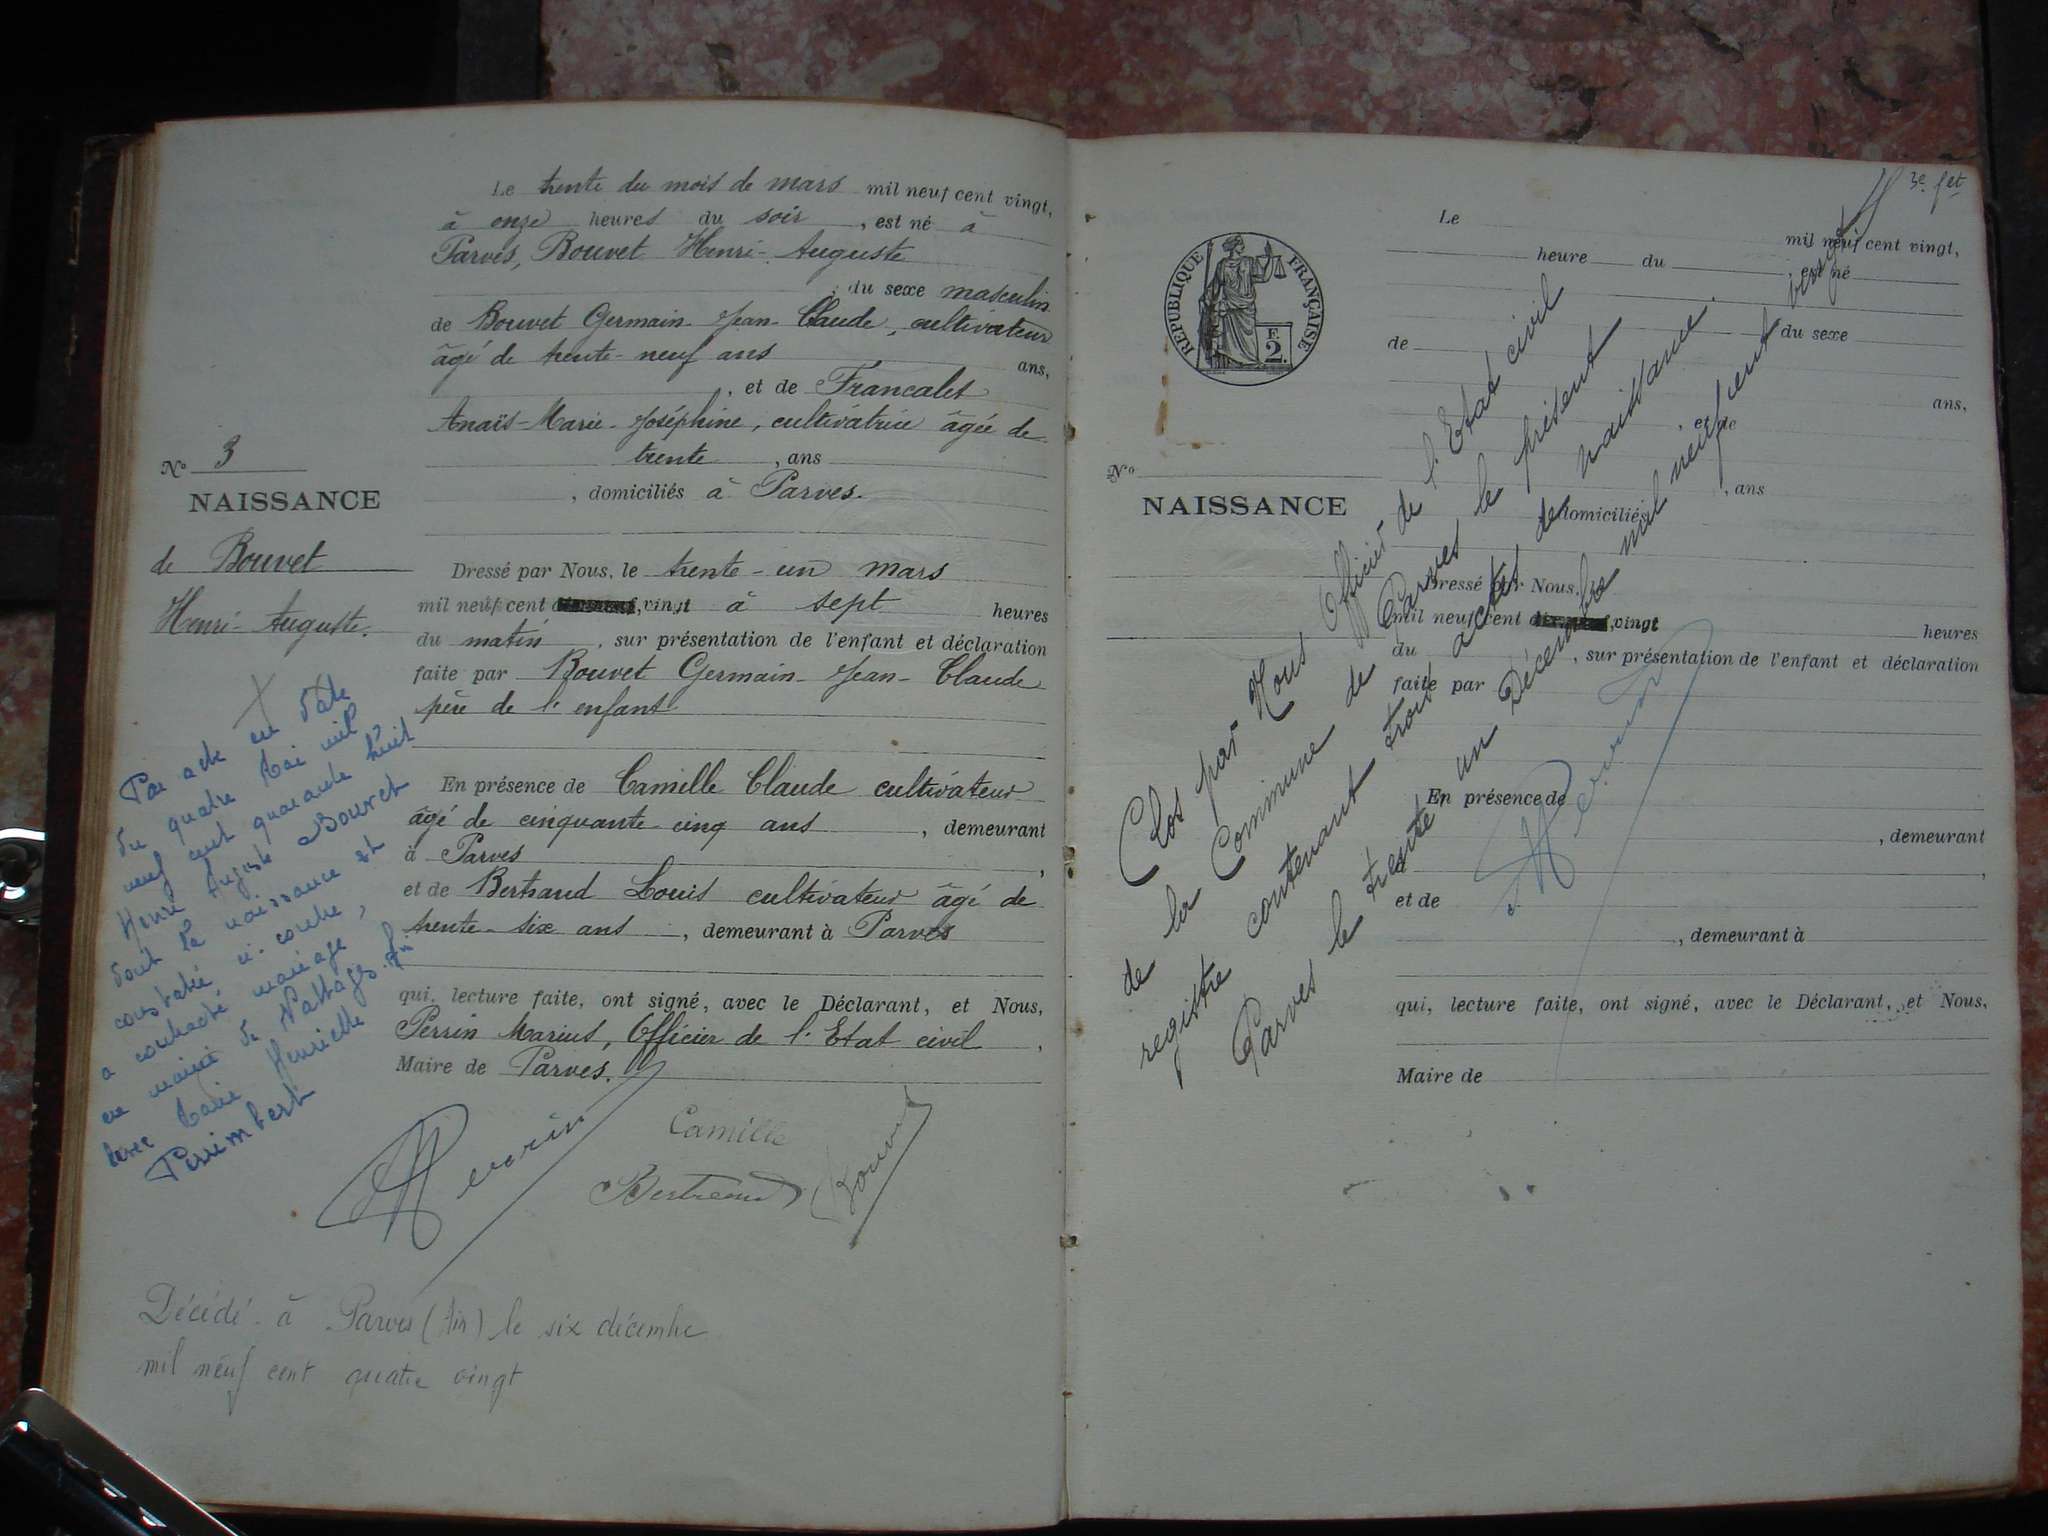 Le trente du mois de mars mil neuf cent vingt,
à onze heures du soir, est né à
Parves, Bouvet Henri-Auguste
, du sexe masculin
de Bouvet Germain-Jean-Claude, cultivateur
âgé de trente-neuf ans ans,
, et de Francalet
Anaïs-Marie-Joséphine, cultivatrice âgée de
trente, ans
, domiciliés à Parves.
N° 3
NAISSANCE
de Bouvet
Henri-Auguste.
Dressé par Nous, le trente-un mars
mil neuf cent vingt à sept heures
du matin, sur présentation de l'enfant et déclaration
faite par Bouvet Germain-Jean-Claude
père de l'enfant
En présence de Camille Claude cultivateur
âgé de cinquante-cinq ans, demeurant
à Parves,
et de Bertrand Louis cultivateur âgé de
trente-six ans, demeurant à Parves
qui, lecture faite, ont signé, avec le Déclarant, et Nous,
Perrin Marius, Officier de l'Etat civil,
Maire de Parves.
Par acte en date
du quatre Mai mil
neuf cent quarante huit
Henri Auguste Bouvet
dont la naissance est
constatée ci-contre,
a contracté mariage
en mairie de Nattages
avec Marie Henriette
Perimbert
MPerrin
Camille
Bertrand
Bouvet
Décédé à Parves (Ain) le six décembre
mil neuf cent quatre vingt
3e fet
REPUBLIQUE FRANÇAISE
F.
2.
Le mil neuf cent vingt,
heure du , est né
du sexe
de
ans,
, et de
, ans
domiciliés
N°
NAISSANCE
Dressé par Nous,
mil neuf cent vingt heures
du , sur présentation de l'enfant et déclaration
faite par
En présence de
, demeurant
,
et de
, demeurant à
qui, lecture faite, ont signé, avec le Déclarant, et Nous,
Maire de
Clos par Nous Officier de l'Etat civil
de la Commune de Parves le présent
registre contenant trois actes de naissance.
Parves le trente un Décembre mil neuf cent vingt
MPerrin